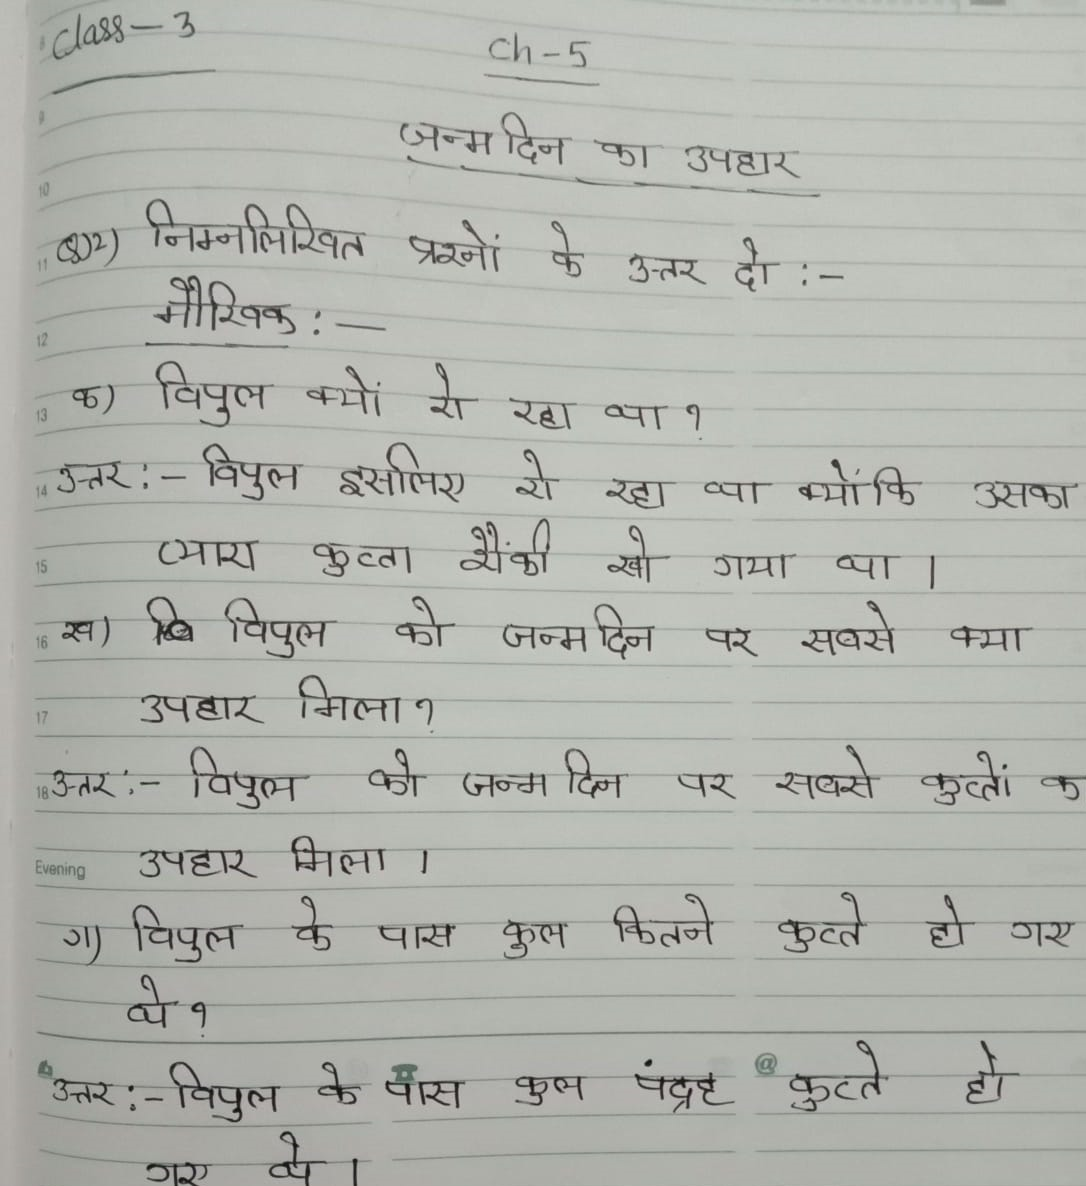 Class – 3
Ch – 5
जन्मदिन का उपहार
Q2) निम्नलिखित प्रश्नों के उत्तर दो :–
मौखिक : —
क) विपुल क्यों रो रहा था ?
उत्तर :– विपुल इसलिए रो रहा था क्योंकि उसका
प्यारा कुत्ता शैंकी खो गया था ।
ख) विपुल को जन्मदिन पर सबसे क्या
उपहार मिला ?
उत्तर :– विपुल को जन्मदिन पर सबसे कुत्तों क
उपहार मिला ।
ग) विपुल के पास कुल कितने कुत्ते हो गए
थे ?
उत्तर :– विपुल के पास कुल पंद्रह कुत्ते हो
गए थे ।
9
10
11
12
13
14
15
16
17
18
Evening
@